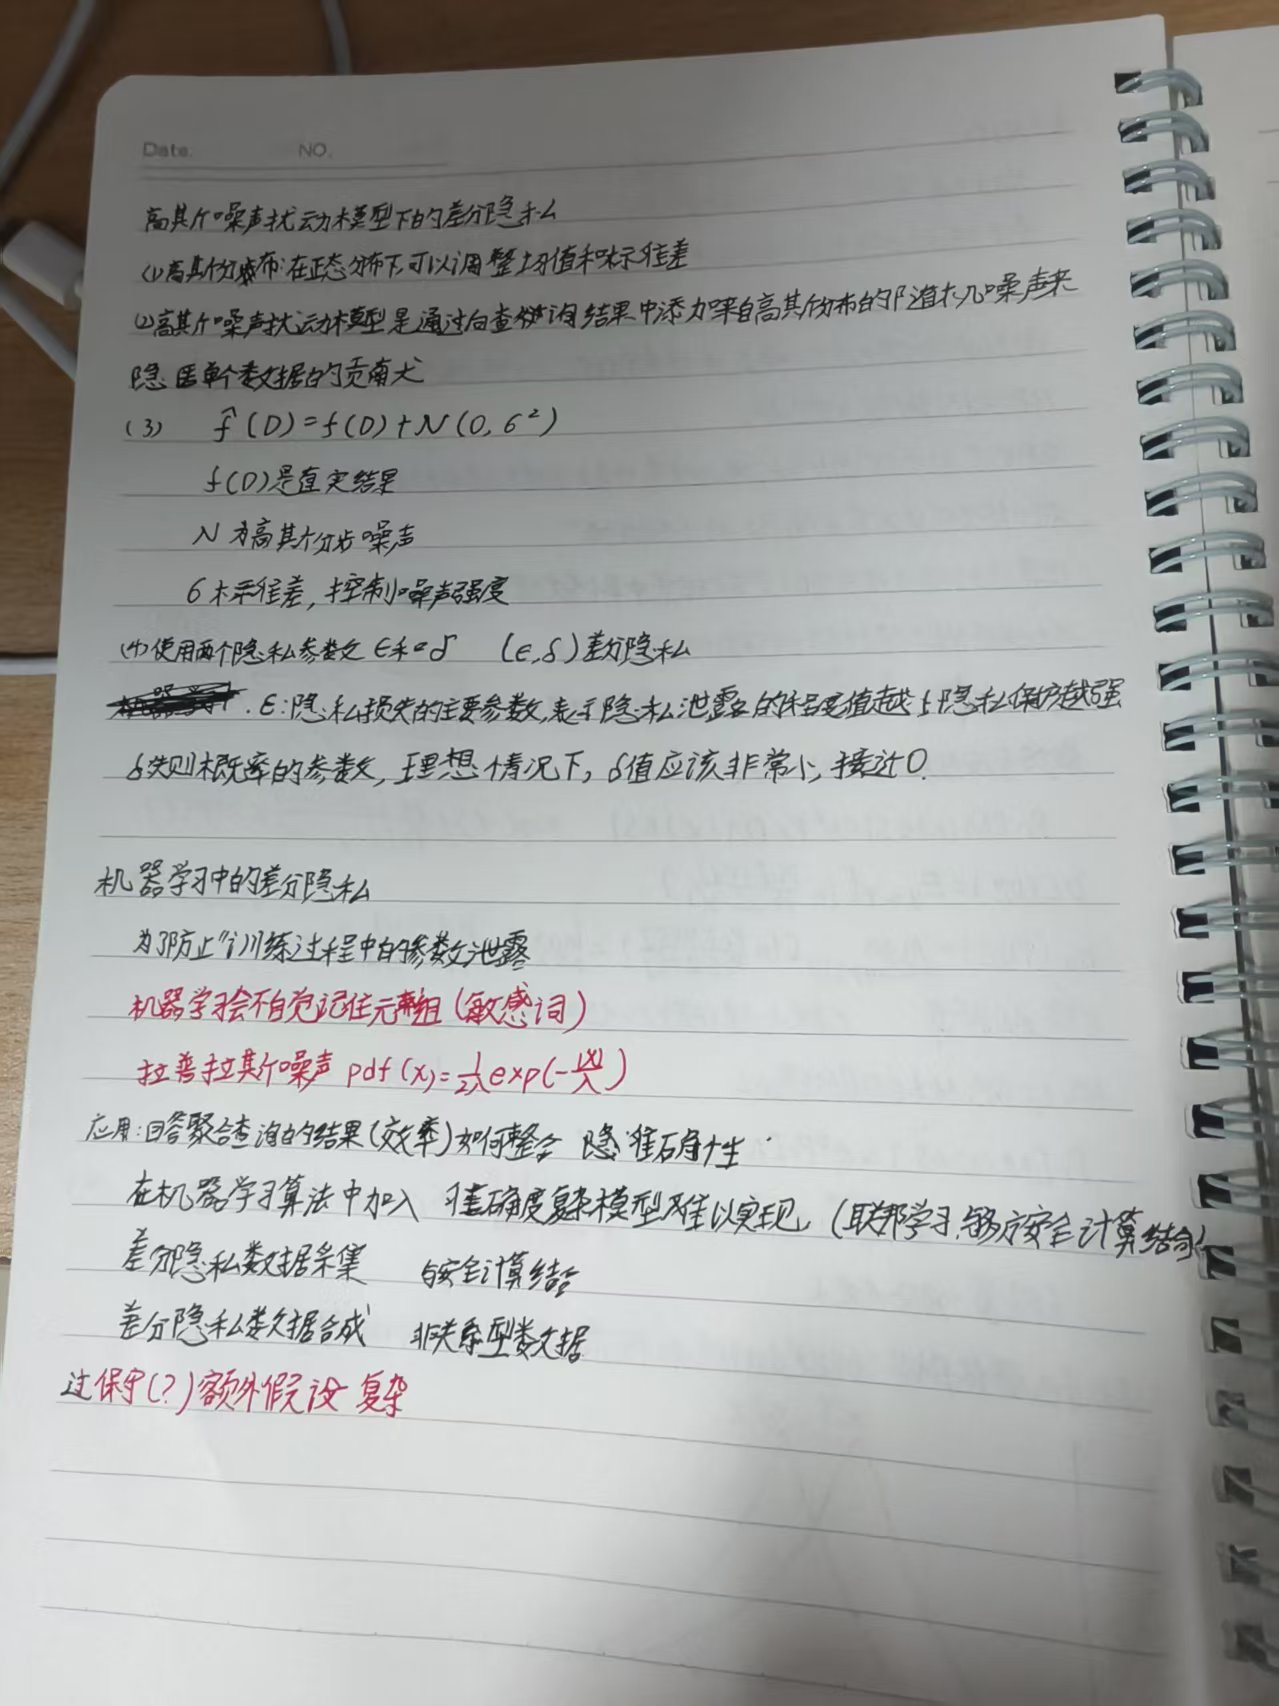 Date. NO.
高斯噪声扰动模型下的差分隐私
(1)高斯分布:在正态分布下,可以调整均值和标准差
(2)高斯噪声扰动模型是通过向查询结果中添加来自高斯分布的随机噪声来
隐匿单个数据的贡献
(3) f̂(D)=f(D)+N(0,6²)
f(D)是真实结果
N为高斯分步噪声
6标准差,控制噪声强度
(4)使用两个隐私参数ϵ和δ (ϵ,δ)差分隐私
ϵ:隐私损失的主要参数,表示隐私泄露的 值越 隐私保护越强
δ失败概率的参数,理想情况下,δ值应该非常小,接近0.
机器学习中的差分隐私
为了防止训练过程中的参数泄露
机器学习会不自觉记住元组(敏感词)
拉普拉斯噪声 pdf(x)=1/2λ exp(-|x|/λ)
应用:回答聚合查询的结果(效率)如何整合 隐 准确性
在机器学习算法中加入 准确度复杂模型难以实现 (联邦学习,多方安全计算结合)
差分隐私数据采集 与安全计算结合
差分隐私数据合成 非关系型数据
过保守(?)额外假设 复杂